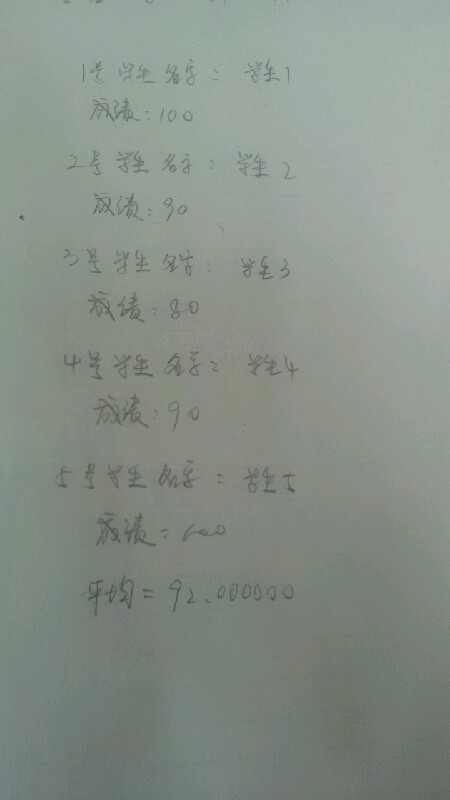 1号学生名字：学生1
成绩：100
2号学生名字：学生2
成绩：90
3号学生名字：学生3
成绩：80
4号学生名字：学生4
成绩：90
5号学生名字：学生5
成绩：100
平均=92.000000